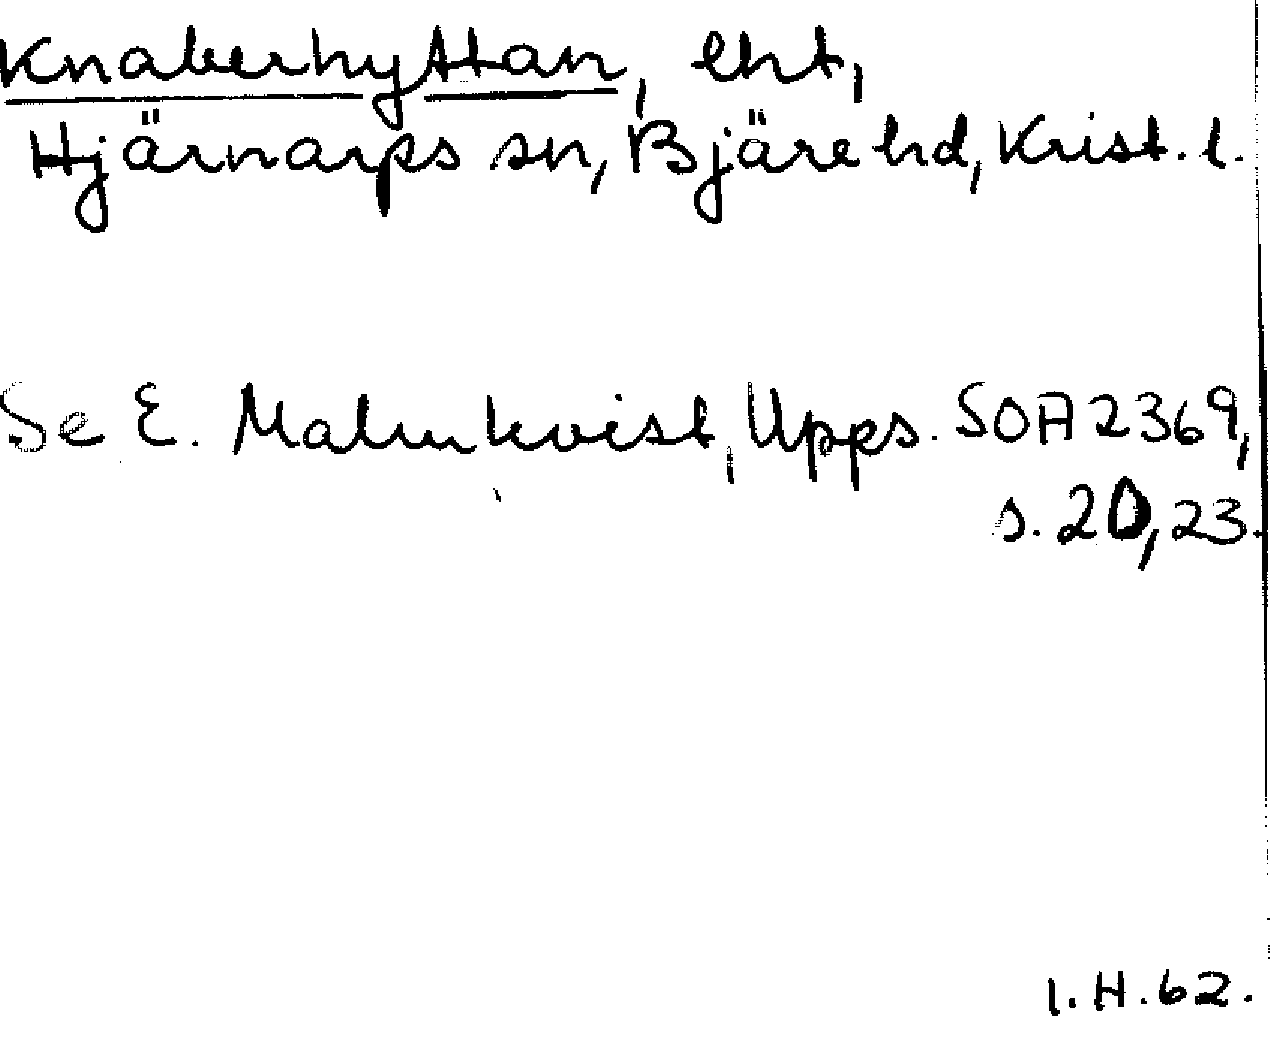 Knaberhyttan, lht,
Hjärnarps sn, Bjäre hd, Krist. l.
Se E. Malmkvist, Upps. SOA 2369,
s. 20, 23.
I. H. 62.